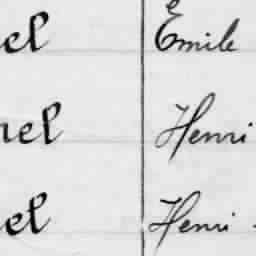 el Émile
nel Henri
el Henri